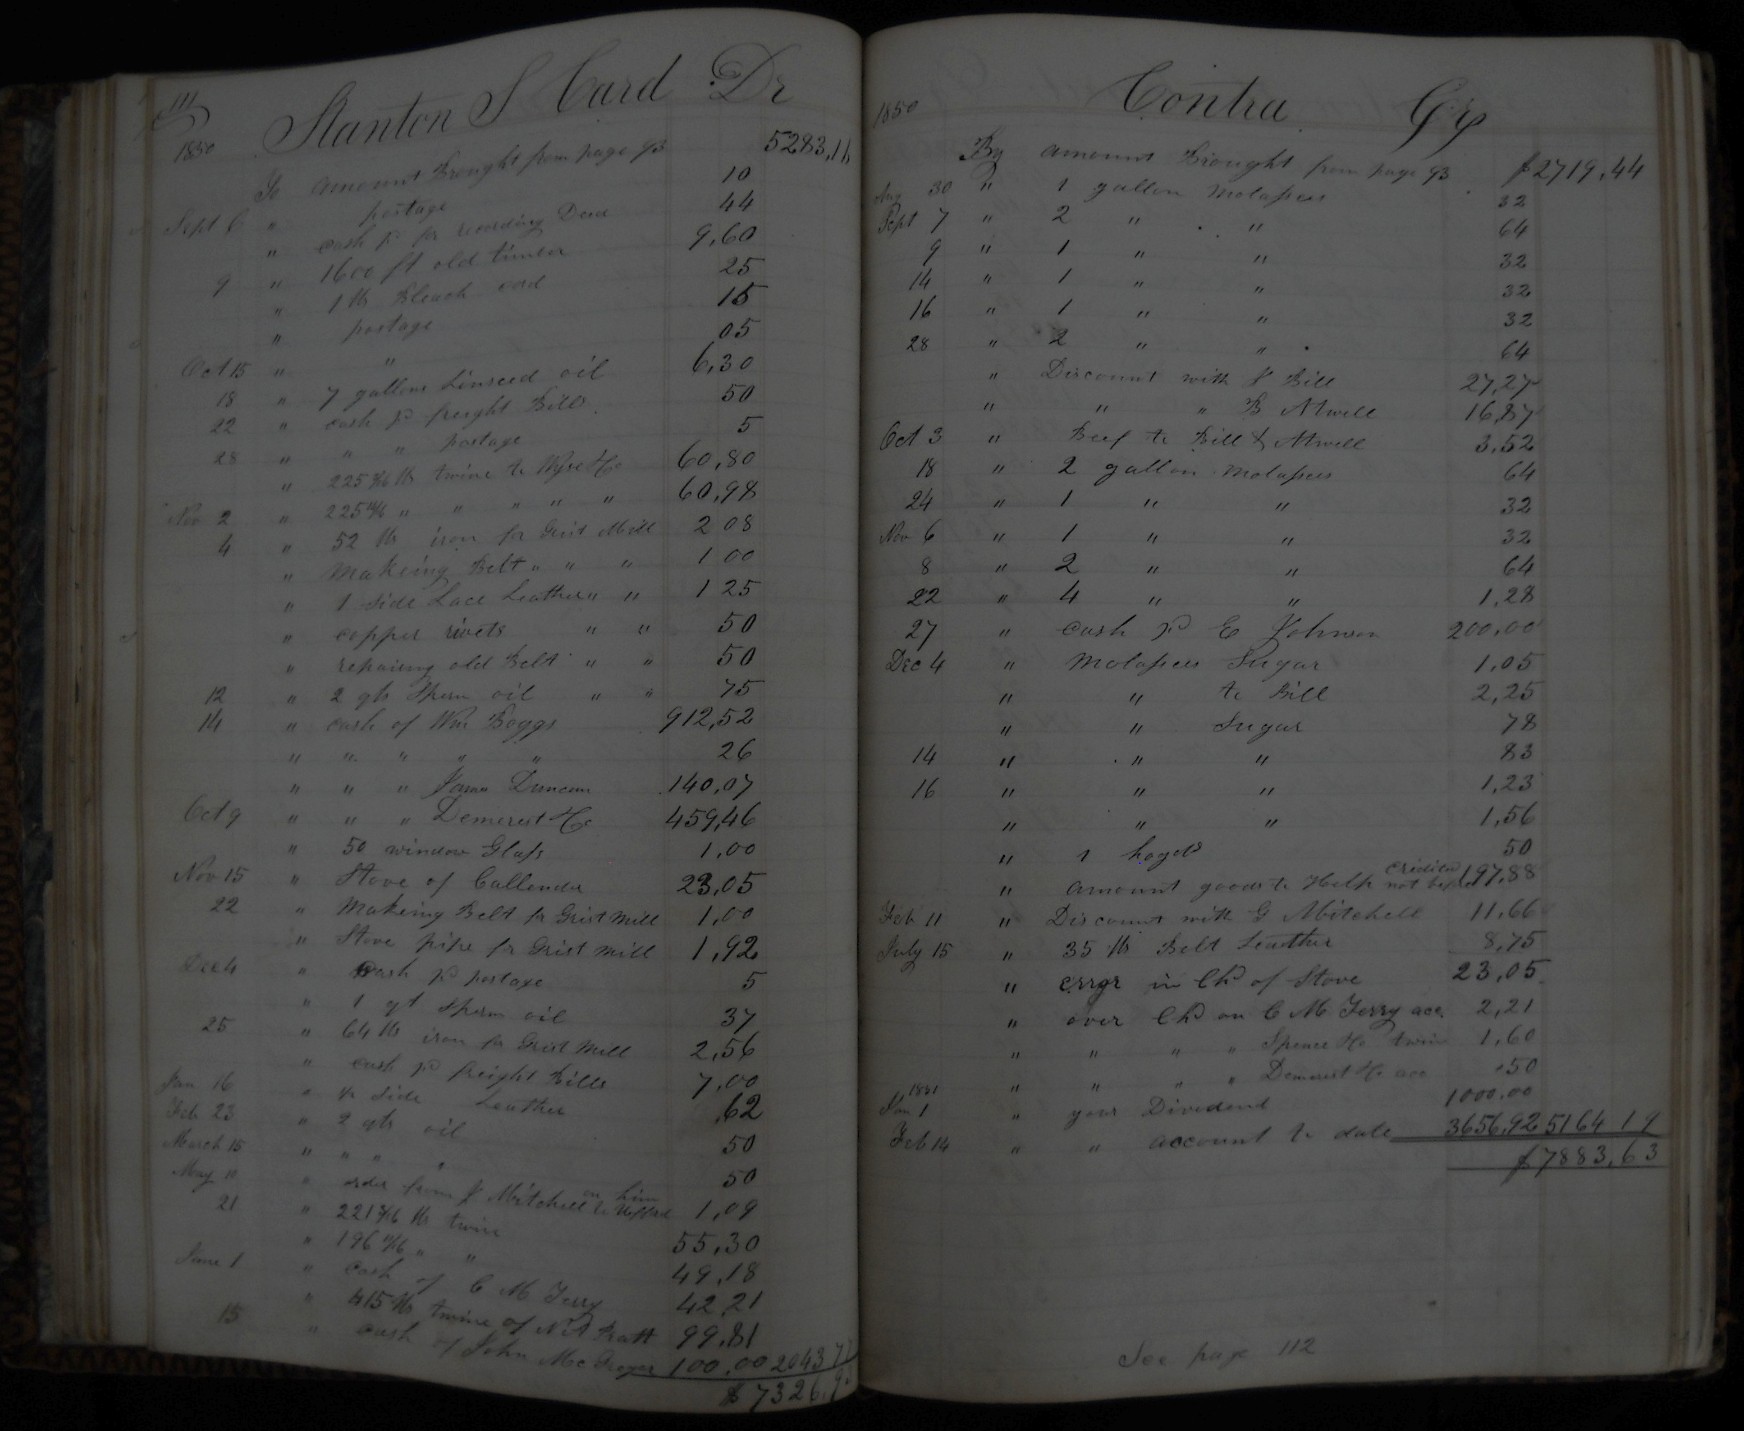 111
Stanton S Card Dr
1850
To amount Brought from page 93 5283,16
" postage 10
Sept 6 " cash pd for recording Deed 44
" 1600 ft old timber 9,60
9 " 1 lb Bleach 25
" postage 15
Oct 15 " " 05
18 " 7 gallons Linseed oil 6,30
22 " cash pd freight Bills 50
28 " " " postage 5
" 225 lb twine to 60,80
Nov 2 " 225 " " " " " 60,98
4 " 52 lb iron for Grist Mill 2 08
" Makeing Belt " " " 1 00
" 1 side Lace Leather " " 1 25
" copper rivets " " 50
" repairing old Belt " " 50
12 " 2 qts Sperm oil " " 75
14 " cash of Wm Boggs 912,52
" " " " " 26
" " " James Duncan 140,07
Oct 9 " " " Demerest & Co 459,46
" 50 window Glass 1,00
Nov 15 " Stove of Callender 23,05
22 " Makeing Belt for Grist Mill 1,00
" Stove pipe for Grist Mill 1,92
Dec 4 " Cash pd postage 5
" 1 qt Sperm oil 37
25 " 64 lb iron for Grist Mill 2,56
" cash pd freight Bills 7,00
Jan 16 " ½ side Leather ,62
Feb 23 " 2 qts oil 50
March 15 " " " " 50
May 10 " order from J Mitchell on him to 1,09
21 " 221 lb twine 55,30
" 196 " " 49,18
June 1 " cash of C M Terry 42,21
" 415 lb twine of N Pratt 99,81
15 " cash of John McGregor 100,00 2043 77
$ 7326,93
1850 Contra Cr
By amount Brought from page 93 $2719,44
Aug 30 " 1 gallon Molasses 32
Sept 7 " 2 " " 64
9 " 1 " " 32
14 " 1 " " 32
16 " 1 " " 32
28 " 2 " " 64
" Discount with J Bill 27,27
" " " B Atwell 16,87
Oct 3 " Beef to Bill & Atwell 3,52
18 " 2 gallon Molasses 64
24 " 1 " " 32
Nov 6 " 1 " " 32
8 " 2 " " 64
22 " 4 " " 1,28
27 " cash pd E Johnson 200,00
Dec 4 " Molasses Sugar 1,05
" " to Bill 2,25
" " Sugar 78
14 " " " 83
16 " " " 1,23
" " " 1,56
" 1 hogd 50
" amount goods to Help credited not before 197,88
Feb 11 " Discount with G Mitchell 11,66
July 15 " 35 lb Belt Leather 8,75
" error in Chd of Stove 23,05
" over Chd on C M Terry acc 2,21
" " " " Spence & Co twine 1,60
" " " " Demerest & Co acc ,50
1851
Jan 1 " your Dividend 1000,00
Feb 14 " " account to date 3656,92 5164 19
$7883,63
See page 112